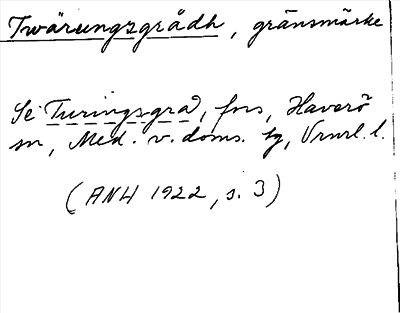 Twärungsgrådh, gränsmärke
Se Turingsgrad, fors, Haverö
sn, Med. v. doms. tg, Vrnrl. l.
(ANH 1922, s. 3)